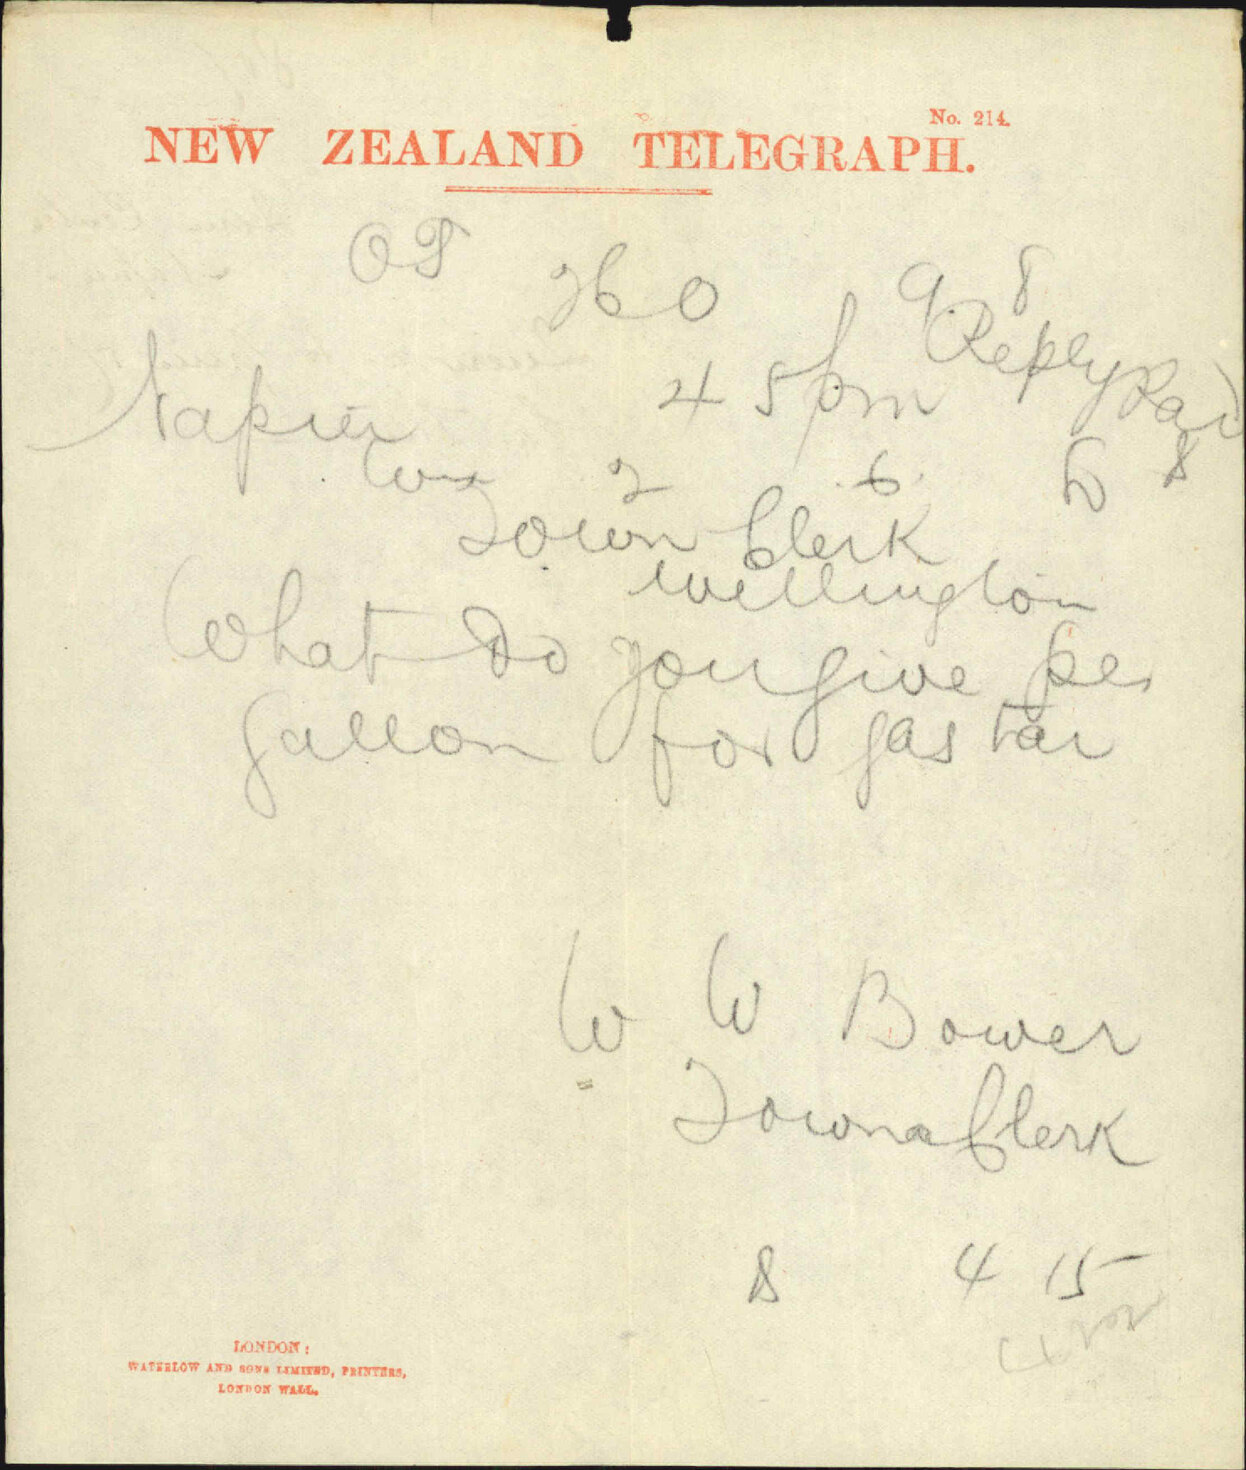 No. 214.
NEW ZEALAND TELEGRAPH.
OS
260 9 8
Reply Paid
Napier 4 5 pm
2 6 8
Town Clerk
Wellington
What do you give per
gallon for gas tar
W W Bower
Town Clerk
8 4 15
LONDON:
WATERLOW AND SONS LIMITED, PRINTERS,
LONDON WALL.